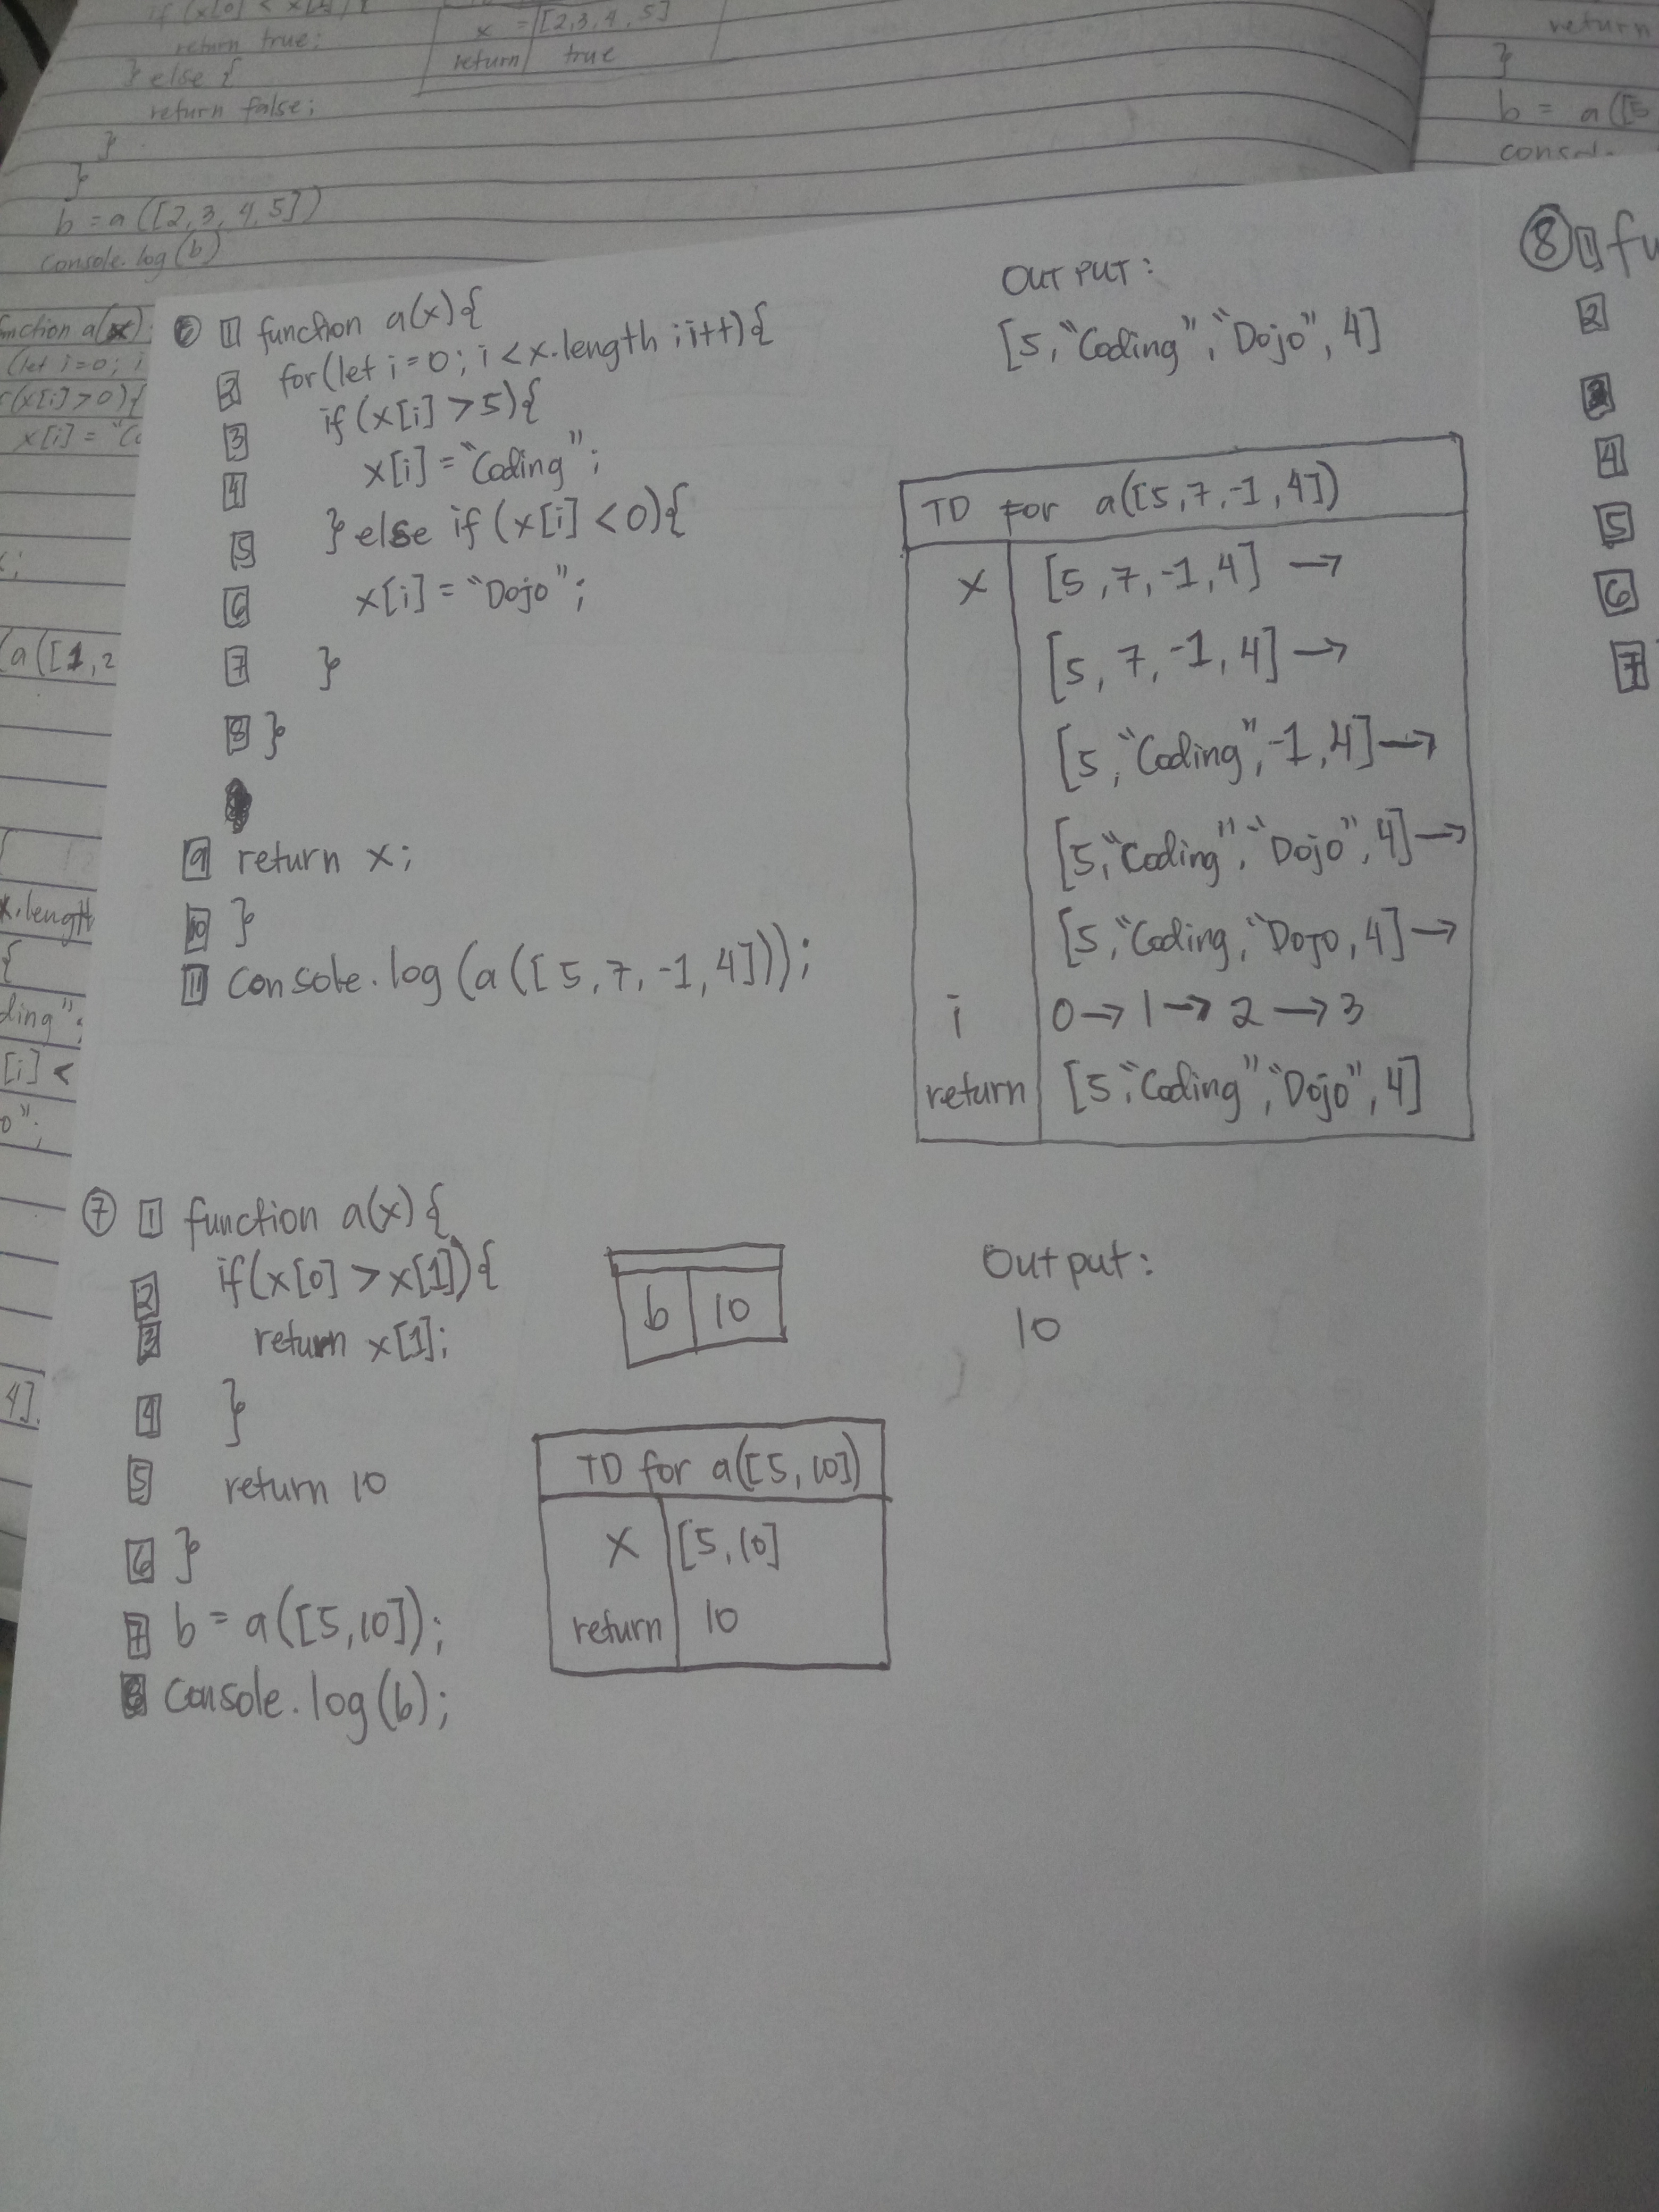 if (x[0] < x[1]) {
return true;
} else {
return false;
}
}
b = a([2,3,4,5])
console.log(b)
x = [2,3,4,5]
return true
return
}
b = a([5
consol.
nction a(x)
(let i=0; i
(x[i]>0){
x[i] = "Co
;
(a([1,2
{
x.length
{
ding";
[i] <
o";
4]
6 1 function a(x){
2 for(let i=0; i<x.length;i++){
3 if(x[i] >5){
4 x[i]="Coding";
5 } else if (x[i] <0){
6 x[i]="Dojo";
7 }
8 }
9 return x;
10 }
11 console.log(a([5,7,-1,4]));
OUTPUT:
[5,"Coding","Dojo",4]
TD for a([5,7,-1,4])
x [5,7,-1,4] →
[5,7,-1,4] →
[5,"Coding",-1,4] →
[5,"Coding","Dojo",4] →
[5,"Coding,"Dojo,4] →
i 0→1→2→3
return [5,"Coding","Dojo",4]
7 1 function a(x){
2 if(x[0] > x[1]){
3 return x[1];
4 }
5 return 10
6 }
7 b = a([5,10]);
8 console.log(b);
b 10
TD for a([5,10])
x [5,10]
return 10
Output:
10
8 1 fu
2
3
4
5
6
7